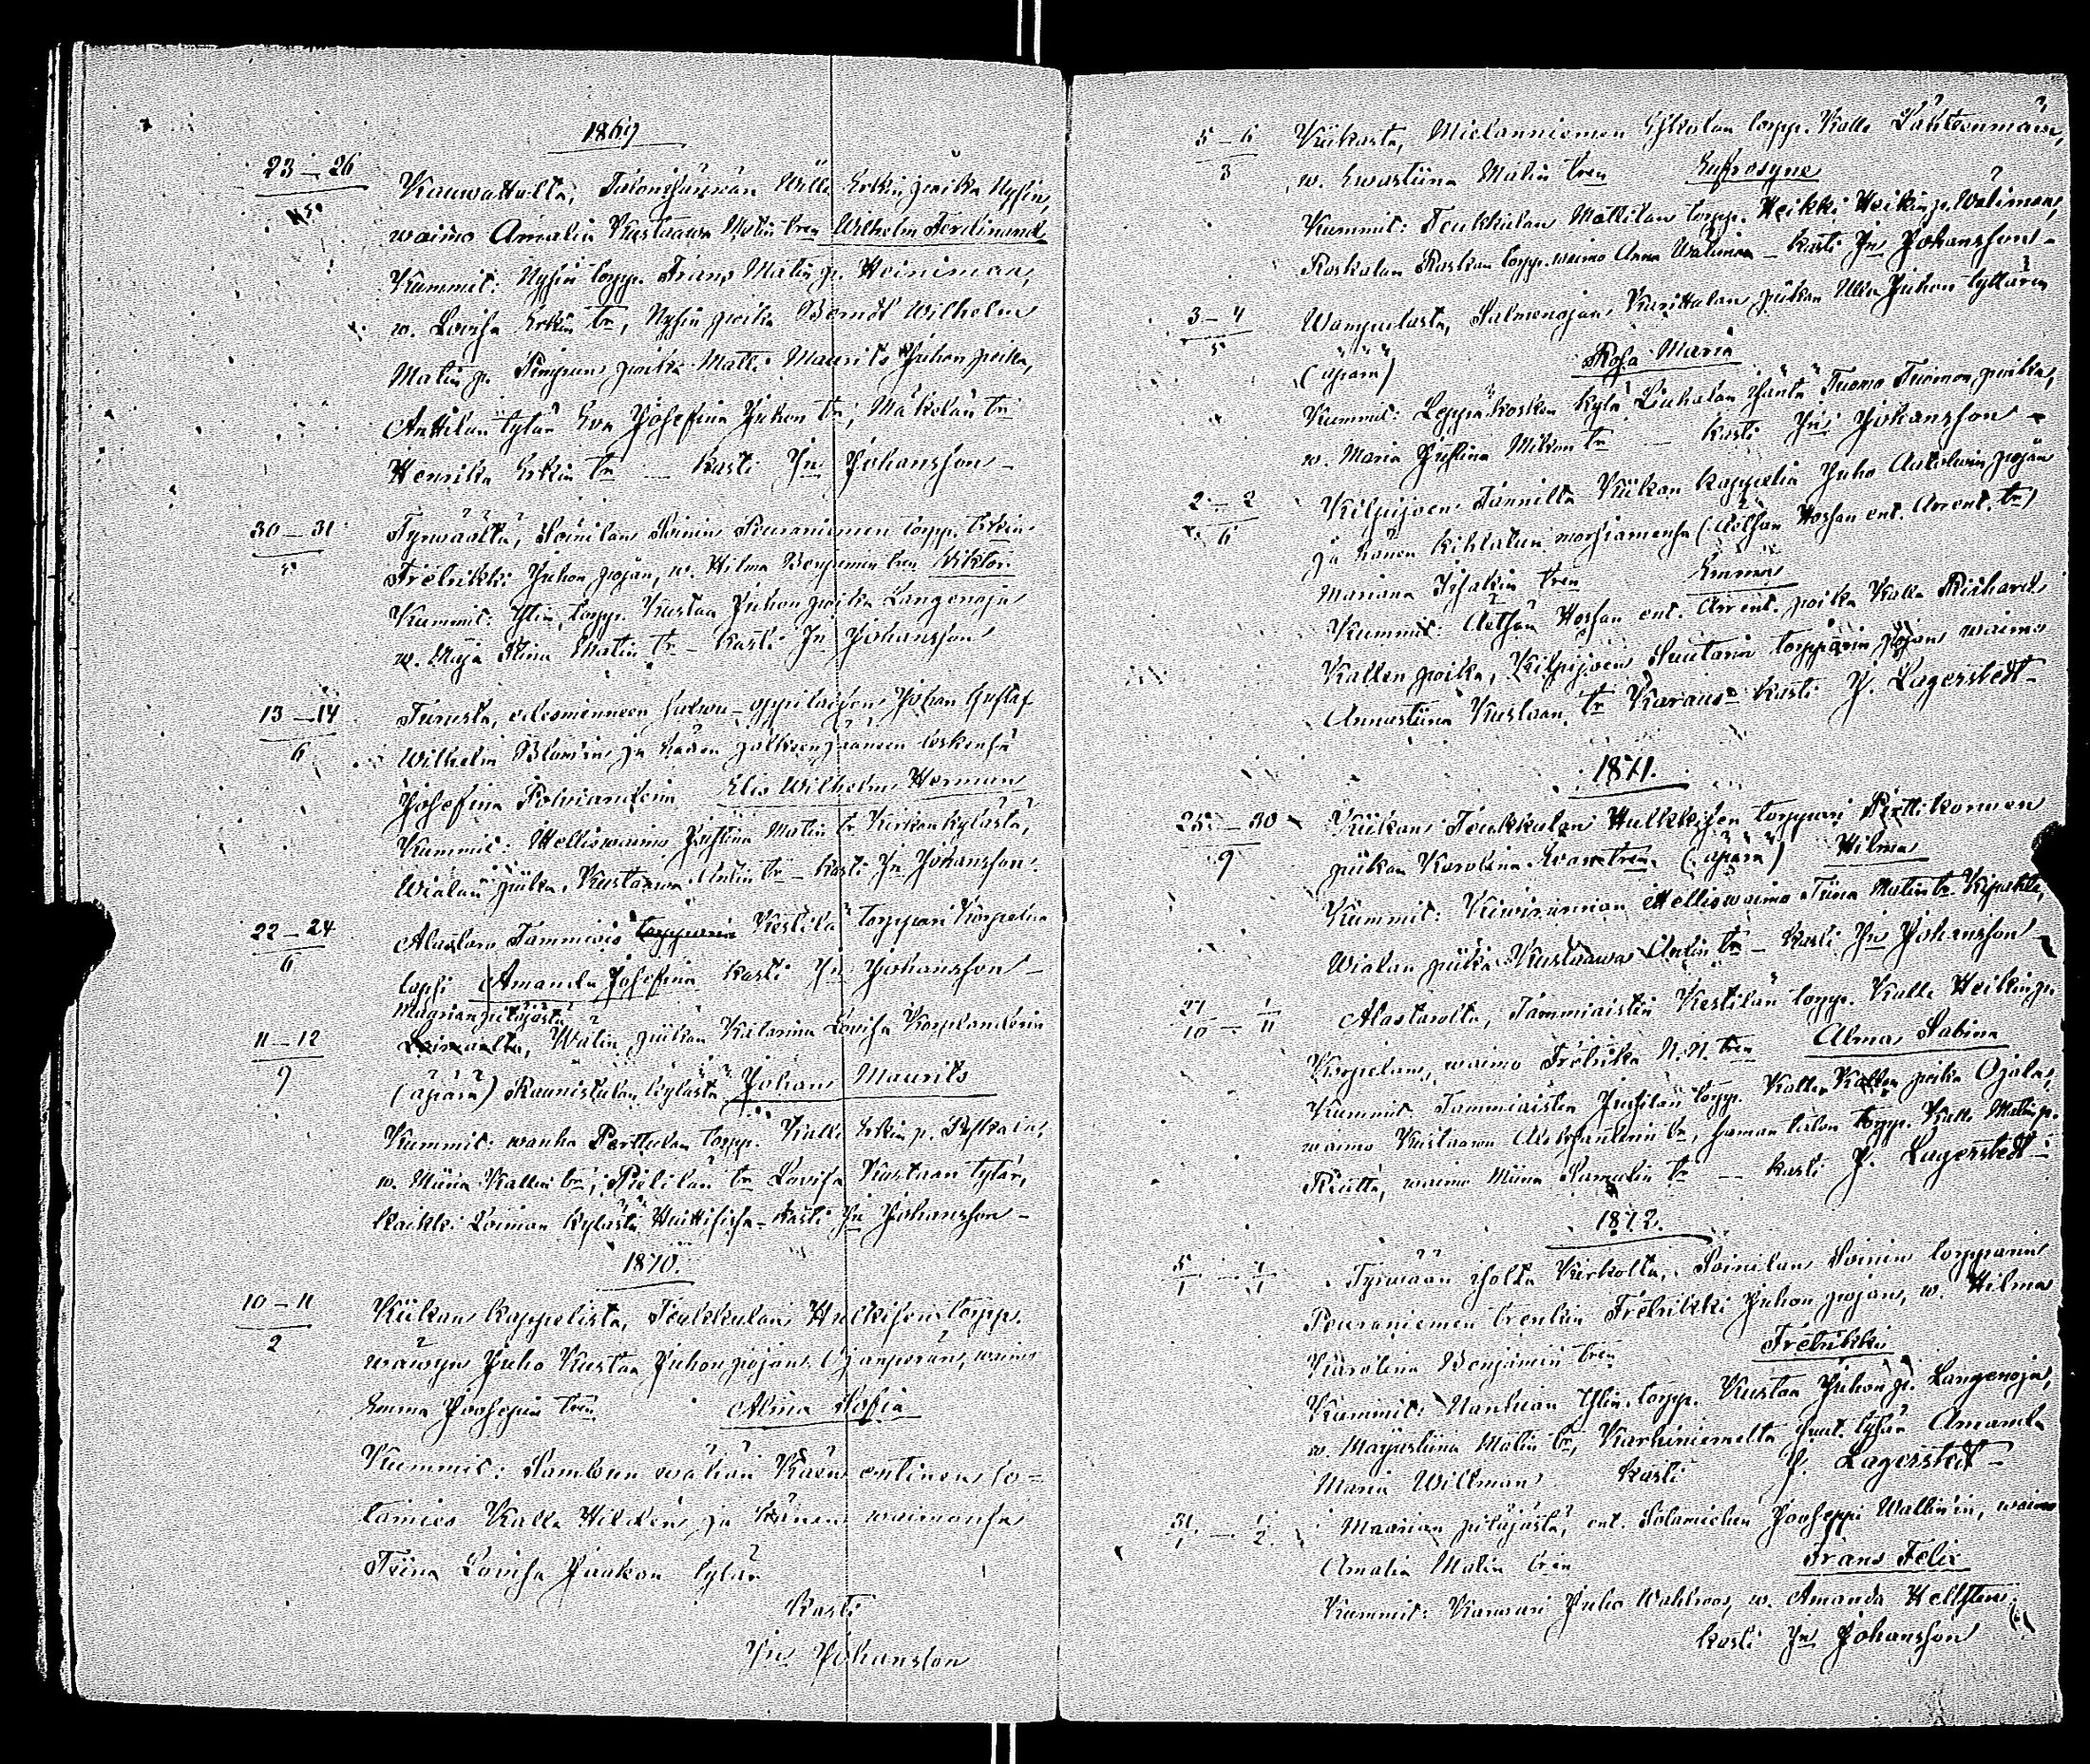 1869
23 – 26
Kauwattulta, Talonisännän Wille Erkin poika Nysin,
waimo Amalia Kustaawa Matin tren Wilhelm Ferdinand
Kummit: Nysin torpp. Frans Matin p. Heiniman,
w. Lovisa Erkin tr, Nysin poika Berndt Wilhelm
Matin p. Simpun poika Matti Maurits Juhon poika,
Anttilan tytär Eva Josefina Juhon tr, Mäkelän tr
Henrika Erkin tr — kasti Jn Johansson –
30 – 31
5
Tyrwäältä, Soinilan Soinin Pouraniemen torpp.
Fredrikki Juhon pojan, w. Hilma Benjamin tren Wiktor.
Kummit: Ylin. torpp. Kustaa Juhon poika Langenoja
w. Maja Stina Matin tr – kasti Jn Johansson
13 – 14
6
Turusta, edesmenneen –oppilaisen Johan Gustaf
Wilhelm Blomin ja hänen jälkeenjääneen leskensä
Josefina Polviander Elis Wilhelm Herman
Kummit: Helliswaimo Justina Matin tr Kirkonkylästä,
Wialan piika Kustaawa Antin tr – kasti Jn Johansson.
22 – 24
6
Alastaro Tammiais torpparin Kestilä torppari Korpelan
lapsi Amanda Josefina kasti Jn Johansson –
Maarian pitäjästä
11 – 12
9
Loimaalta, Wälin piikan Katarina Lovisa
(äpärä) Raunistulan kylästä Johan Maurits
Kummit: wanha Perttulan torpp. Kalle Erkin p.
w. Miina Kallen tr, Pietilän tr Lovisa Kustaan tytär,
kaikki Loiman kylästä Huittisissa – kasti Jn Johansson –
1870.
10 – 11
2
Kiikan kappelista, Teukkulan Hulkkisen torpp.
wäwyn Juho Kustaa Juhon pojan Ojanperän, waimo
Emma Joosepin tren Alma Sofia
Kummit: Sambun wähän Kärn entinen so=
tamies Kalle Hildén ja hänen waimonsa
Tiina Lovisa Jaakon tytär
Kasti
Jn Johansson
5 – 6
3
Kiikasta, Mielanniemen Eskolan torpp. Kalle Lähteenmäen,
w. Ewastiina Matin tren Eufrosyne
Kummit: Teukkulan Mattilan torpp. Heikki Heikin p. Waliman,
Raskalan Raskan torpp. waimo Anna Waliman – kasti Jn Johansson –
3 – 4
5
Wampulasta, Salmenojan Karittalan piikan Ulla Juhon tyttären
(äpärä) Rosa Maria
Kummit: Leppäkosken kylä Liuhalan isäntä Tuomo Tuomon poika,
w. Maria Justina Mikon tr — kasti Jn Johansson –
2 – 2
6
Kilpijoen Tannilta Kiikan kappelia Juho Antolwin pojan
ja hänen kihlatun morsiamensa (Äetsän Hossan ent. Arrent. tr)
Mariana Isakin tren Emma
Kummit: Äetsän Hossan ent. Arrent. poika Kalle Richard
Kallen poika, Kilpijoen Suutarin torpparin pojan waimo
Annastiina Kustaan tr Karaus – kasti J. Lagerstedt –
1871.
25 – 30
9
Kiikan Teukkulan Hulkkisen torppari Perttikormen
piikan Karolina tren (äpärä) Hilma
Kummit: Kiwirinnan Helliswaimo Tiina Matin tr
Wialan piika Kustaawa Antin tr – kasti Jn Johansson –
27/10 – 1/11
Alastarolta, Tammiaisten Kestilän torpp. Kalle Heikin p.
Korpelan, waimo Fredrika N.N. tren Alma Sabina
Kummit: Tammiaisten Jussilan torpp. Kalle Kallen poika Ojala,
waimo Kustaawa Aleksanterin tr, saman talon torpp. Kalle Matin p.
Riutta, waimo Miina Samulin tr — kasti J. Lagerstedt –
1872.
5/1 – 7/1
Tyrwään isolta Kirkolta, Soinilan Soinin torpparin
Pouraniemen trenkin Fredrikki Juhon pojan, w. Hilma
Karolina Benjamin tren Fredrikki
Kummit: Nanhian Ylin. torpp. Kustaa Juhon p. Langenoja,
w. Majastiina Matin tr, Karhiniemeltä tytär Amanda
Maria Willman kasti J. Lagerstedt –
31/1 – 1/2
Maarian pitäjästä, ent. Solamiehen Jooseppi Wallin'in, waimo
Amalia Matin tren Frans Felix
Kummit: Karwari Juho Wahlroos, w. Amanda Hellsten.
kasti Jn Johansson